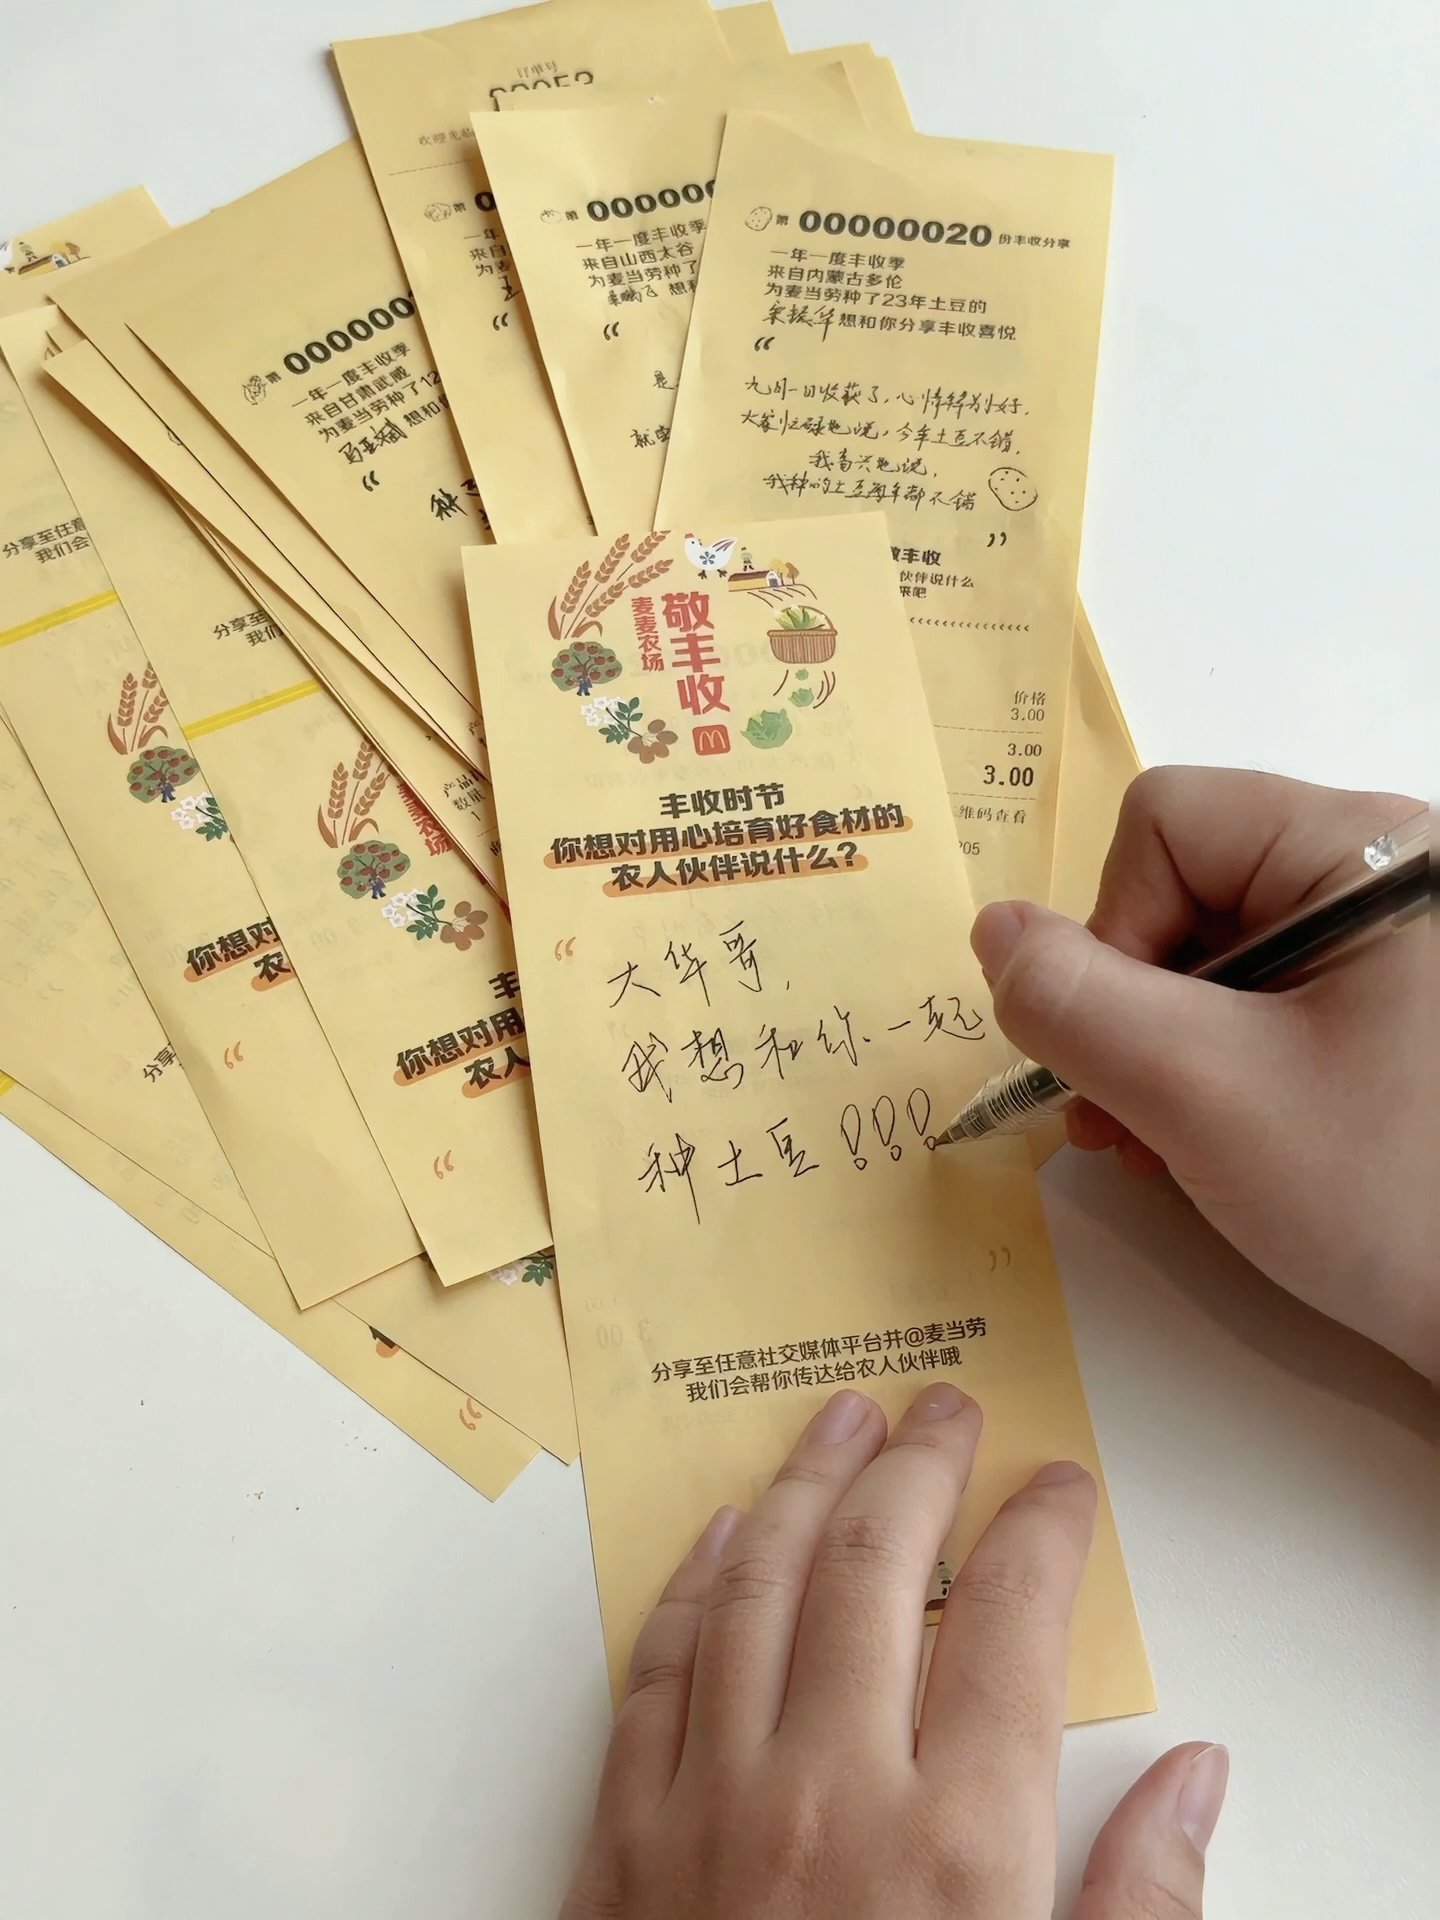 订单号
欢迎光临
第
一年
来自
为麦
“
第 000000
一年一度丰收季
来自山西太谷
为麦当劳种了
想和
“
是
就
第 00000020 份丰收分享
一年一度丰收季
来自内蒙古多伦
为麦当劳种了23年土豆的
宋振华想和你分享丰收喜悦
“
九月一日收获了,心情特别好.
大家忙碌地说,今年土豆不错.
我高兴地说,
我种的土豆每年都不错
”
敬丰收
伙伴说什么
来吧
价格
3.00
3.00
3.00
维码查看
205
第 0000000
一年一度丰收季
来自甘肃武威
为麦当劳种了12
想和你
“
种
分享至任意
我们会
分享至
我们
产品
数量
1
麦麦农场
你想对
农
“
丰
你想对用
农人
“
分享
麦麦农场
敬丰收
丰收时节
你想对用心培育好食材的
农人伙伴说什么?
“
大华哥,
我想和你一起
种土豆!!!
”
分享至任意社交媒体平台并@麦当劳
我们会帮你传达给农人伙伴哦